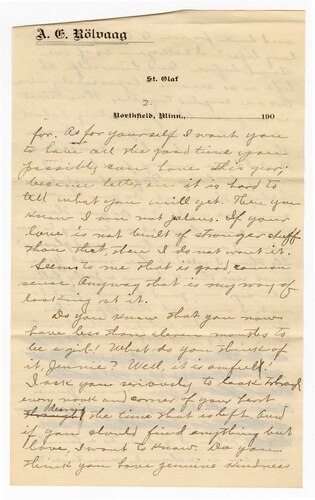 A. E. Rölvaag
St. Olaf
2.
Northfield, Minn., 190
for. As for yourself I want you
to have all the good time you
possibly can have this year;
because later on it is hard to
tell what you will get. Then you
know I am not jealous. If your
love is not built of stronger stuff
than that, then I do not want it.
Seems to me that is good common
sense. Anyway that is my way of
looking at it.
Do you know that you now
have less than eleven months to
be a girl? What do you think of
it, Jennie? Well, it is awful.
I ask you seriously to look
every nook and corner of your heart
during the time that is left. And
if you should find anything but
love, I want to know. Do you
think you have genuine kindness